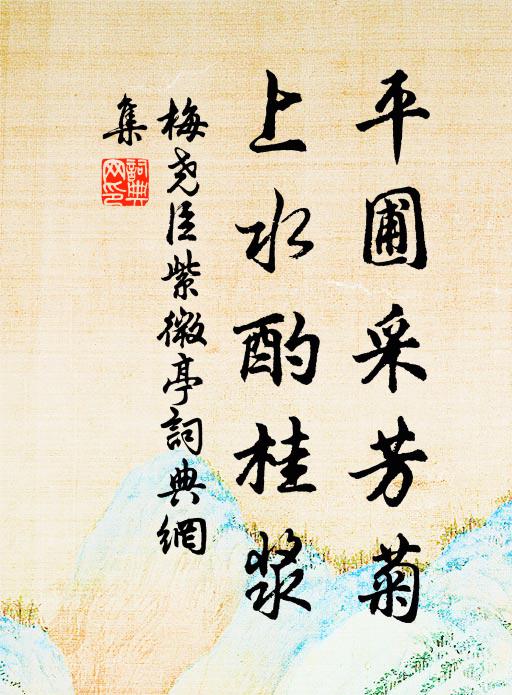 平圃采芳菊
上水酌桂漿
梅尧臣紫微亭詞典網
集
詞典網印